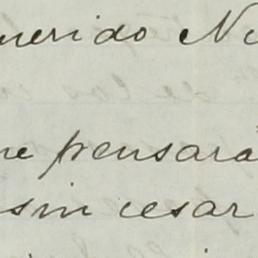 uerido Ni
ue pensara
sin cesar